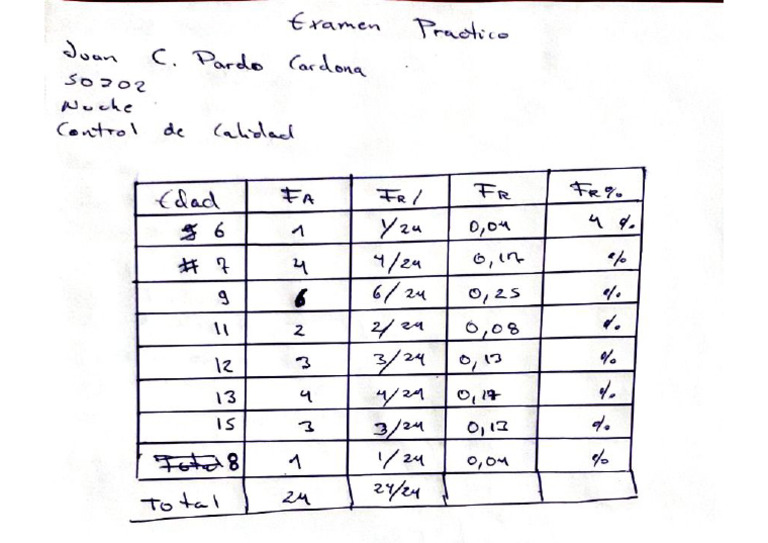 Examen Practico
Juan C. Pardo Cardona
50202
Noche
Control de Calidad
Edad FA FR/ FR FR%
6 1 1/24 0,04 4 %
# 7 4 4/24 0,17 %
9 6 6/24 0,25 %
11 2 2/24 0,08 %
12 3 3/24 0,13 %
13 4 4/24 0,17 %
15 3 3/24 0,13 %
8 1 1/24 0,04 %
Total 24 24/24